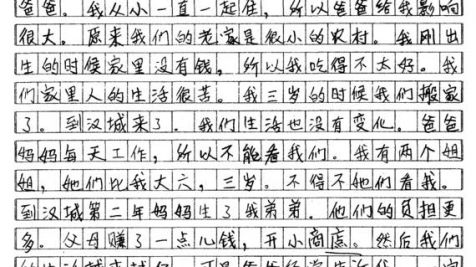 爸爸。我从小一直一起住，所以爸爸给我影响
很大。原来我们的老家是很小的农村。我刚出
生的时候家里没有钱，所以我吃得不太好。我
们家里人的生活很苦。我三岁的时候我们搬家
了。到汉城来了。我们生活也没有变化。爸爸
妈妈每天工作，所以不能看我们。我有两个姐
姐，她们比我大六，三岁。不得不她们看我。
到汉城第二年妈妈生了我弟弟。他们的负担更
多。父母赚了一点儿钱，开小商店。然后我们